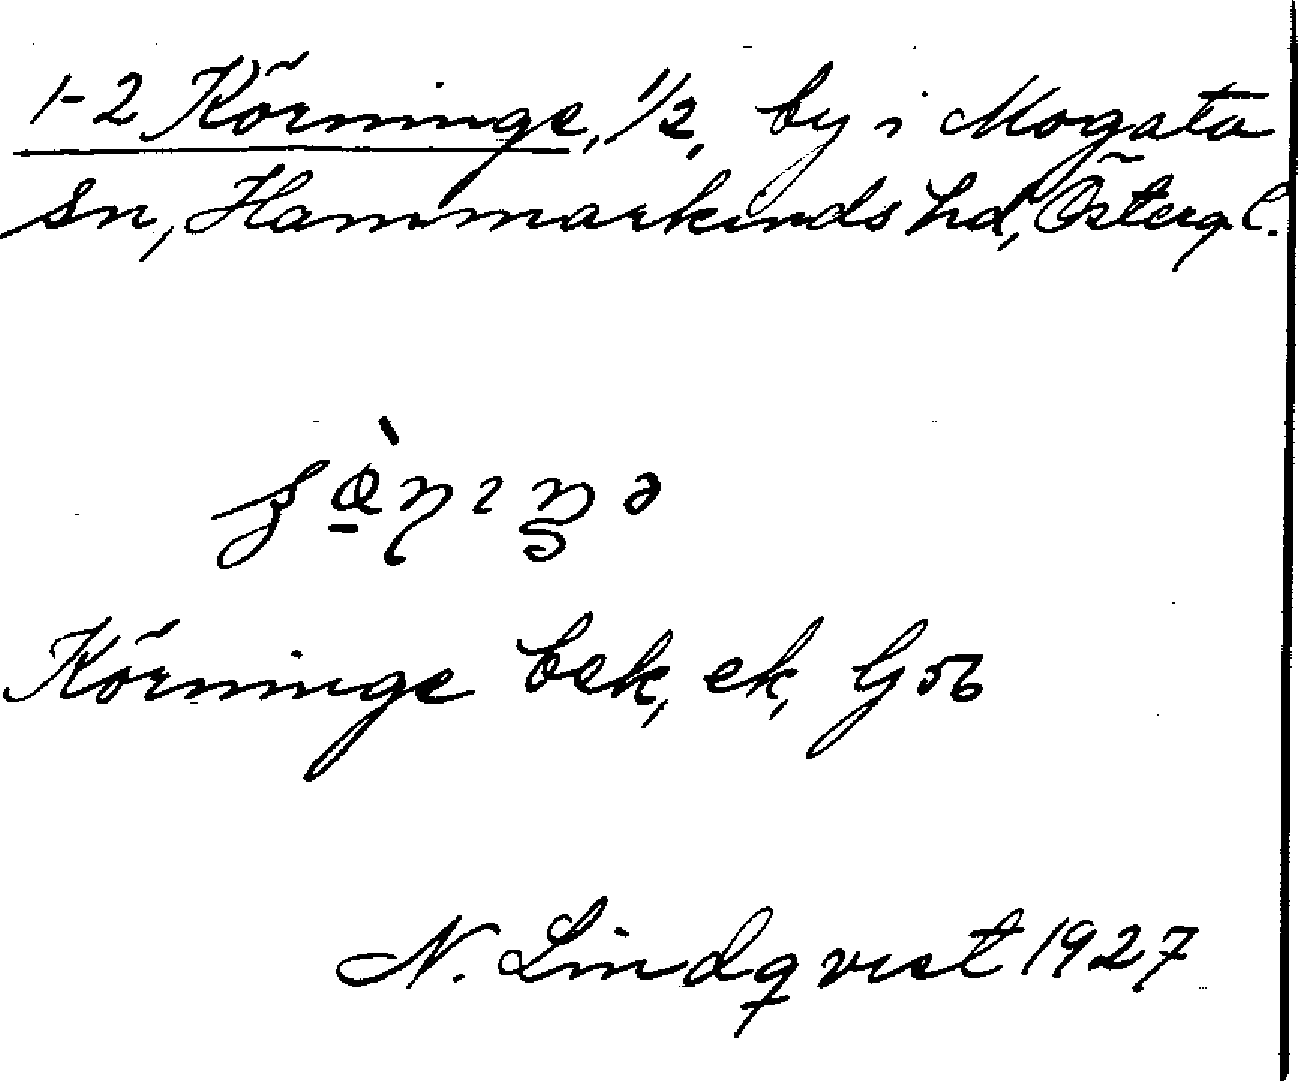 1-2 Körninge, 1/2, by i Mogata
sn, Hammarkinds hd, Östergl.
Körninge bek, ek, G56
N. Lindqvist 1927